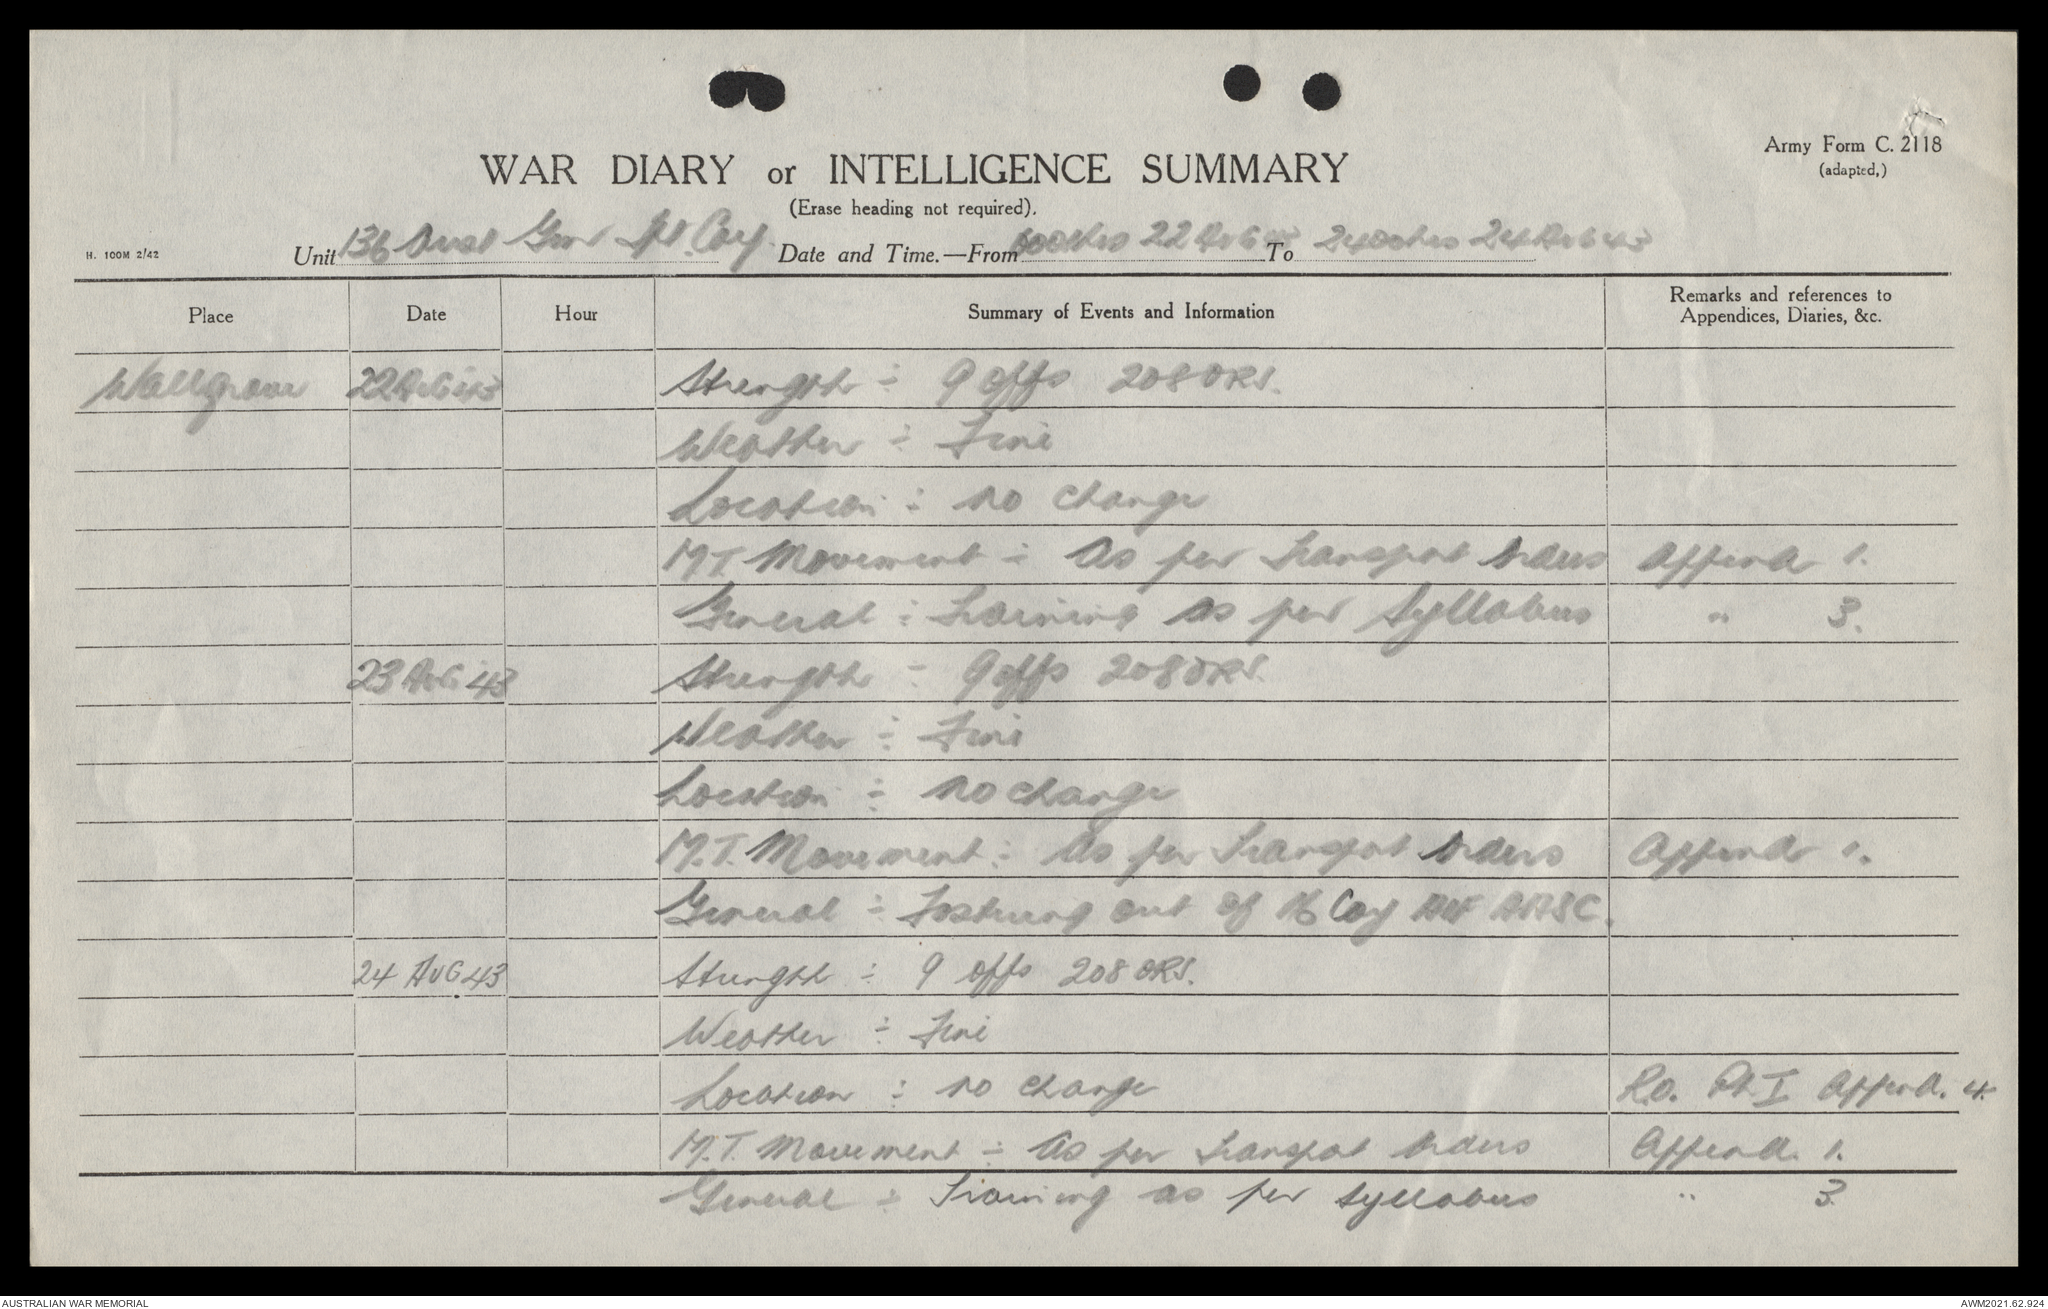 Army Form C. 2118
(adapted,)
WAR DIARY or INTELLIGENCE SUMMARY
(Erase heading not required).
H. 100M 2/42
Unit 136 Aust Gen Tpt. Coy Date and Time.—From 0001hrs 22 AUG 43 To 2400hrs 24 AUG 43
Place Date Hour Summary of Events and Information Remarks and references to Appendices, Diaries, &c.
Wallgrove 22 AUG 43 Strength :- 9 offs 208 ORS.
Weather :- Fine
Location :- no change
M.T. Movement :- As per Transport Orders Append 1.
General :- Training as per Syllabus " 3.
23 AUG 43 Strength :- 9 offs 208 ORS.
Weather :- Fine
Location :- no change
M.T. Movement :- As per Transport Orders Append 1.
General :- out of Coy AIF AASC.
24 AUG 43 Strength :- 9 offs 208 ORS.
Weather :- Fine
Location :- no change R.O. Pt I Append. 4.
M.T. Movement :- As per Transport Orders Append. 1.
General :- Training as per Syllabus " 3.
AUSTRALIAN WAR MEMORIAL
AWM2021.62.924